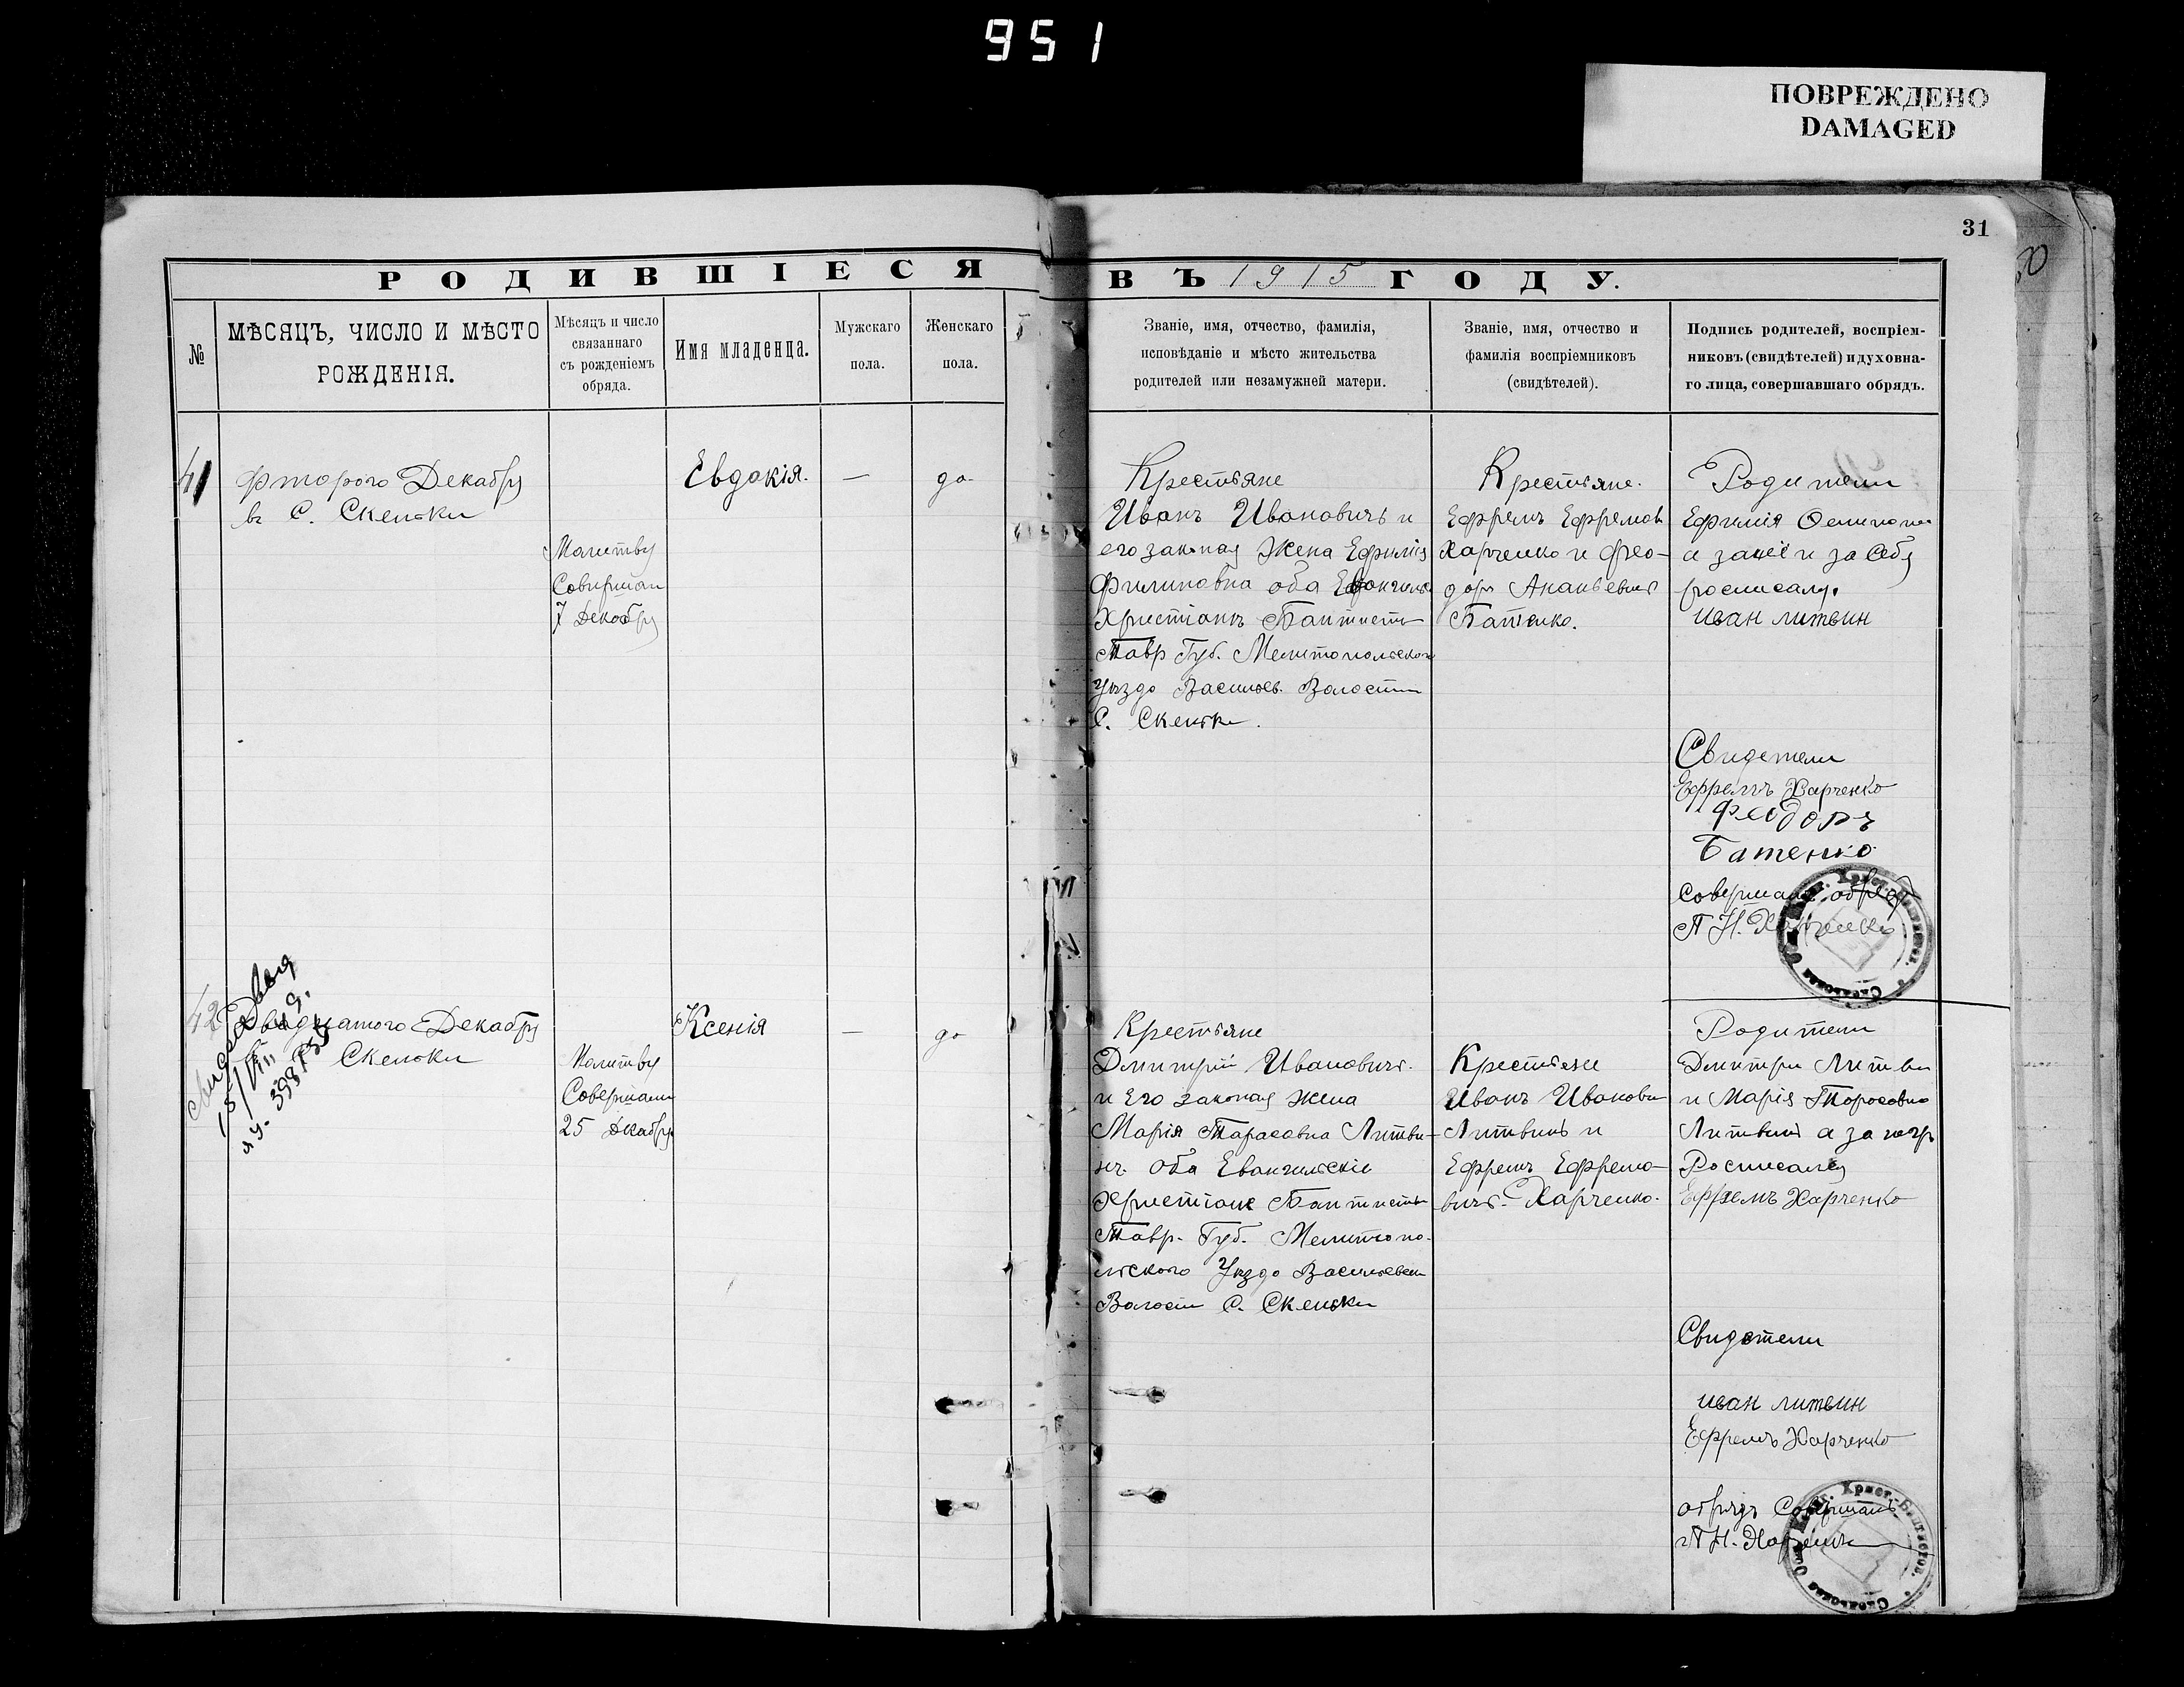 951
ПОВРЕЖДЕНО
DAMAGED
31
РОДИВШІЕСЯ
ВЪ 1915 ГОДУ.
№
МѢСЯЦЪ, ЧИСЛО И МѢСТО
РОЖДЕНІЯ.
Мѣсяцъ и число
связаннаго
съ рожденіемъ
обряда.
Имя младенца.
Мужскаго
пола.
Женскаго
пола.
Званіе, имя, отчество, фамилія,
исповѣданіе и мѣсто жительства
родителей или незамужней матери.
Званіе, имя, отчество и
фамилія воспріемниковъ
(свидѣтелей).
Подпись родителей, воспріем-
никовъ (свидѣтелей) и духовна-
го лица, совершавшаго обрядъ.
41
фторого Декабря
въ С. Скельки
Малитву
Совершал
7 Декабря
Евдокія.
—
да
Крестьяне
Иванъ Ивановичъ и
его законая Жена Ефимія
Филиповна оба
Христіанъ Баптист
Тавр Губ. Мелитопольского
Уѣздо Васильев. Волости
С. Скельки.
Крестьяне.
Ефремъ Ефремов
Харченко и Фео-
доръ Ананьевичъ
Батенко.
Родители
Ефимія
а за неё и за Себя
росписался
иван литвин
Свидетели
Ефремъ Харченко
Феодоръ
Батенко
Совершалъ обряд
П Н. Харченко
42
Двадцатого Декабря
Скельки
Малитву
Совершали
25 Декабря
Ксенія
—
да
Крестьяне
Дмитрій Ивановичъ.
и Его законая жена
Марія Тарасовна Литви-
нъ. Оба Евангельскіе
Христіане Баптисты
Тавр. Губ. Мелитопо-
льского Уѣздо Васильевск
Волости С. Скельки
Крестьяне
Иванъ Иванови
Литвинъ и
Ефремъ Ефремо-
вичъ. Харченко.
Родители
Дмитри Литвин
и Марія Торосовна
Литвинъ а за
Росписался
Ефремъ Харченко
Свидетели
иван литвин
Ефремъ Харченко
обрядъ Совершалъ
П Н. Харченко